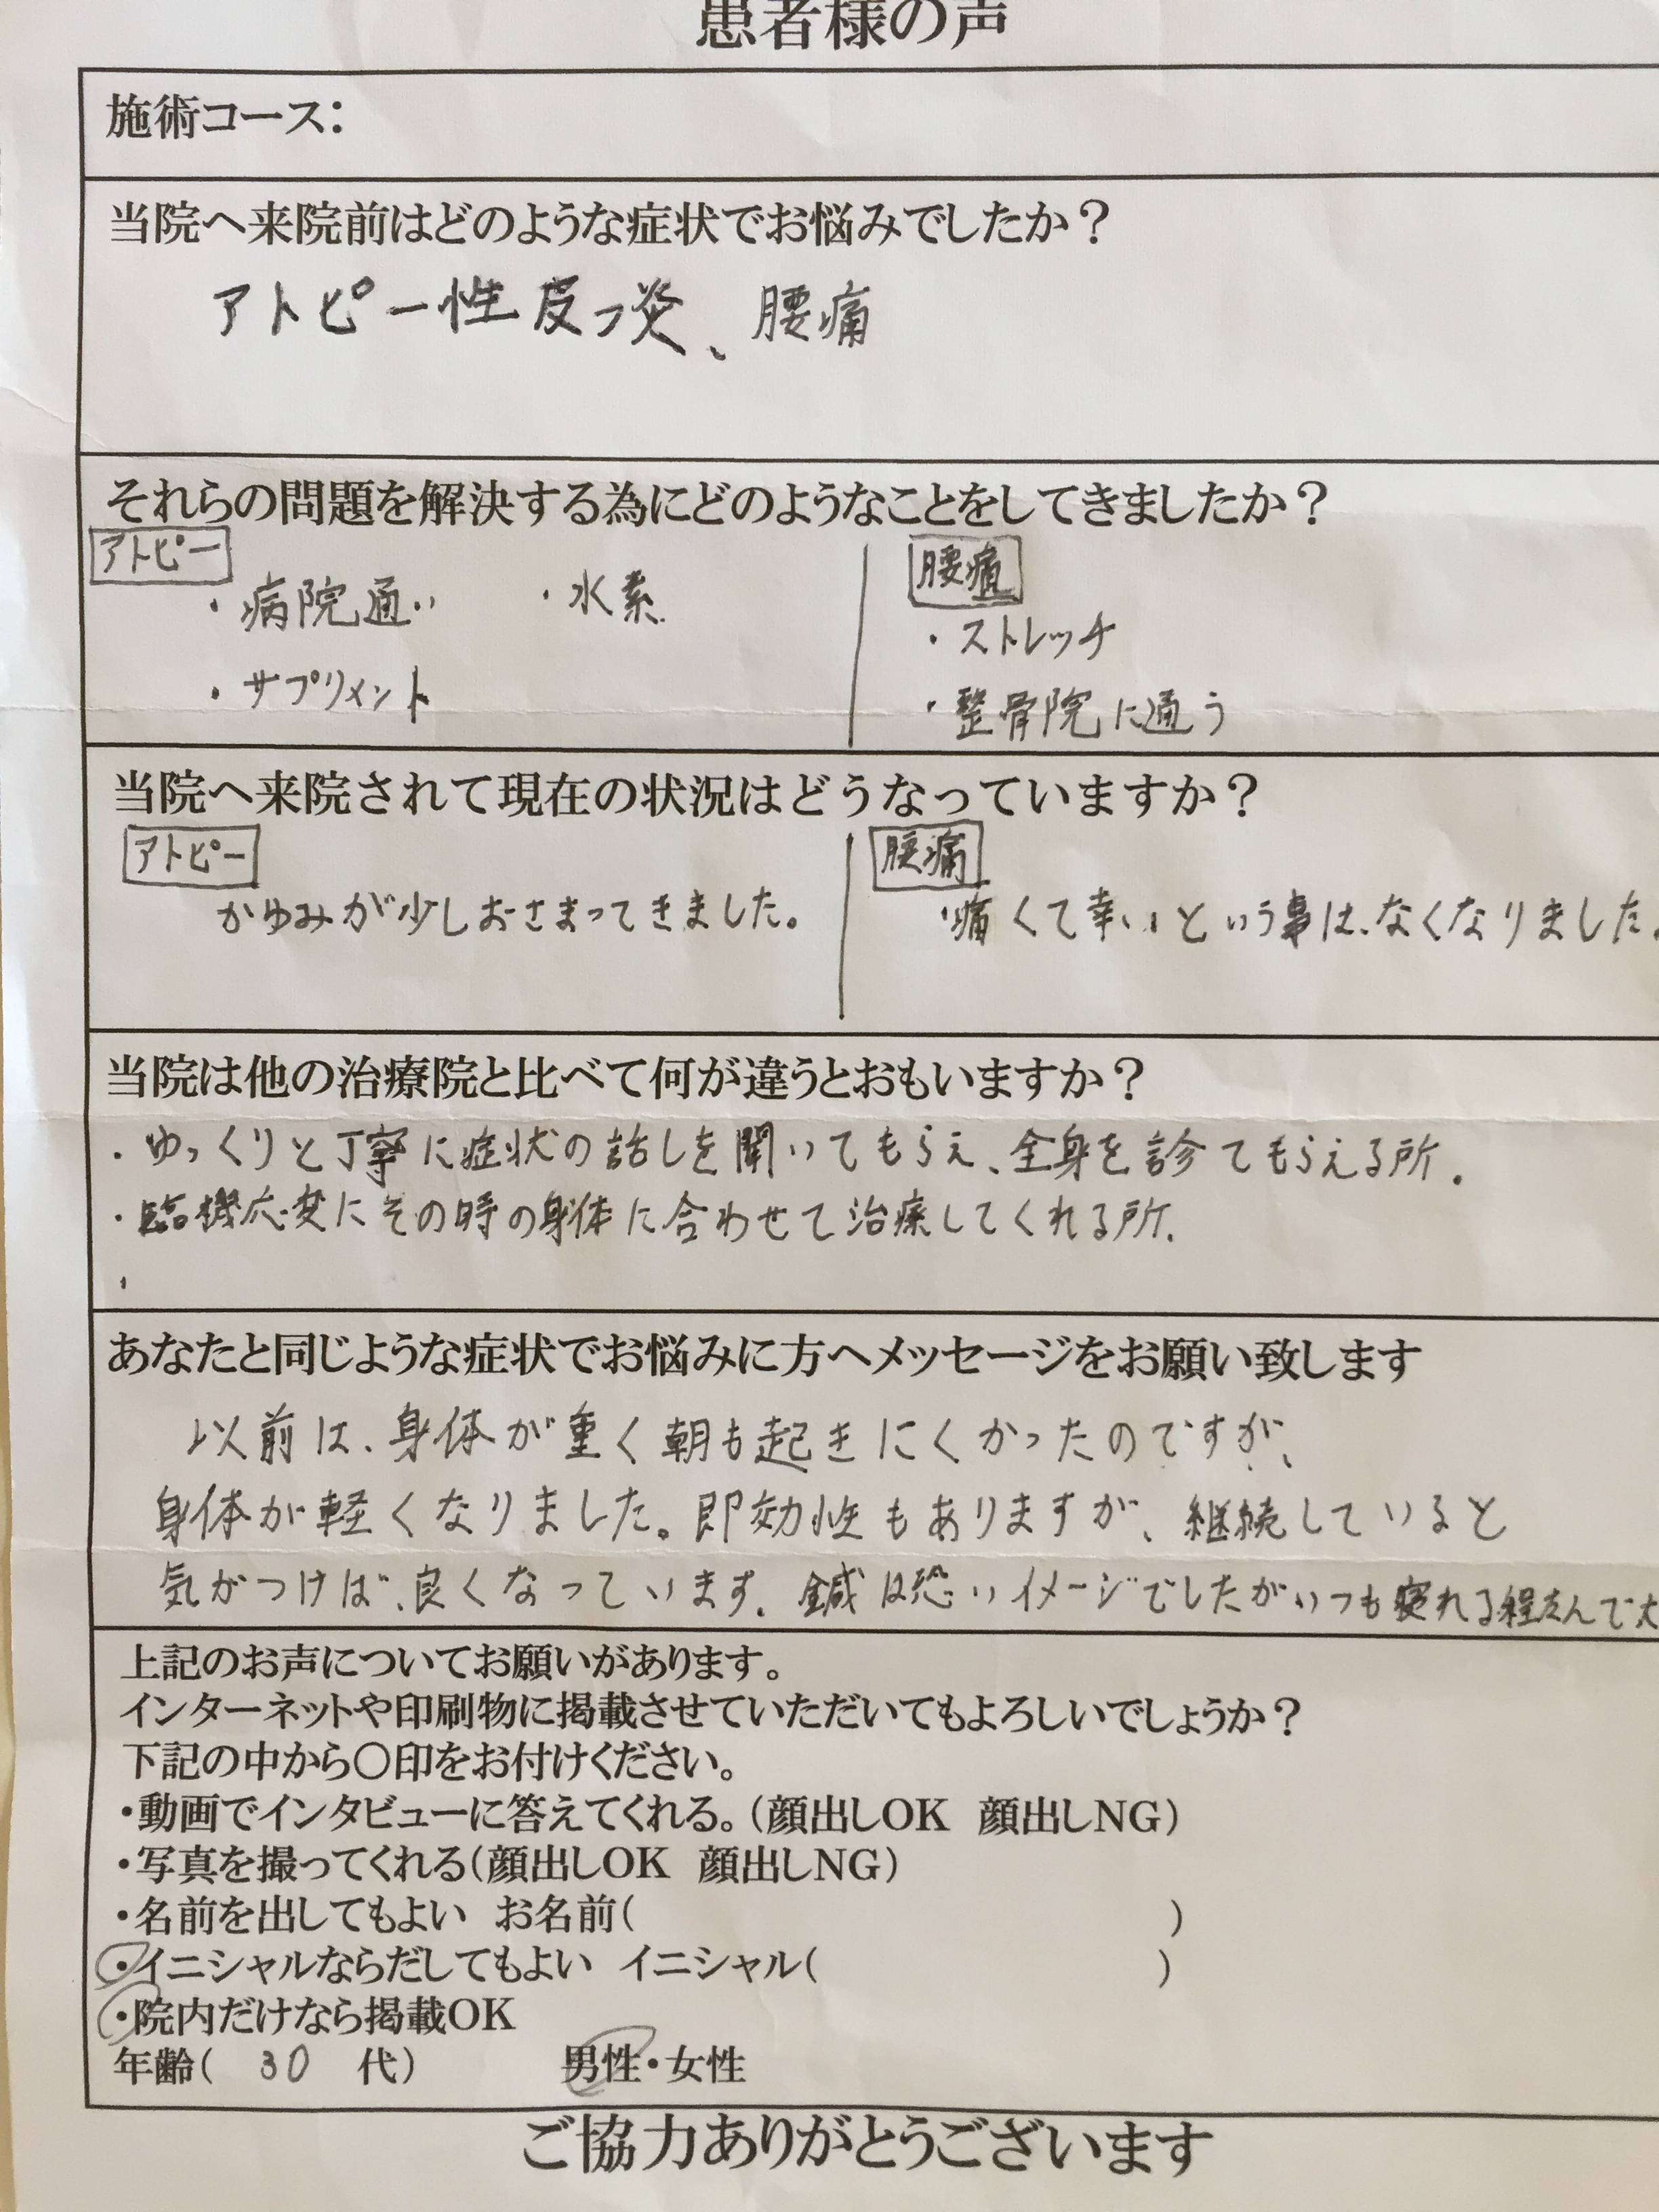 患者様の声
施術コース：
当院へ来院前はどのような症状でお悩みでしたか？
アトピー性皮フ炎、腰痛
それらの問題を解決する為にどのようなことをしてきましたか？
アトピー
・病院通い ・水素
・サプリメント
腰痛
・ストレッチ
・整骨院に通う
当院へ来院されて現在の状況はどうなっていますか？
アトピー
かゆみが少しおさまってきました。
腰痛
痛くて辛いという事は、なくなりました。
当院は他の治療院と比べて何が違うとおもいますか？
・ゆっくりと丁寧に症状の話しを聞いてもらえ、全身を診てもらえる所。
・臨機応変にその時の身体に合わせて治療してくれる所。
・
あなたと同じような症状でお悩みに方へメッセージをお願い致します
以前は、身体が重く朝も起きにくかったのですが、
身体が軽くなりました。即効性もありますが、継続していると
気がつけば、良くなっています。鍼は恐いイメージでしたがいつも寝れる程なんで大
上記のお声についてお願いがあります。
インターネットや印刷物に掲載させていただいてもよろしいでしょうか？
下記の中から〇印をお付けください。
・動画でインタビューに答えてくれる。（顔出しOK 顔出しNG）
・写真を撮ってくれる（顔出しOK 顔出しNG）
・名前を出してもよい お名前（ ）
・イニシャルならだしてもよい イニシャル（ ）
・院内だけなら掲載OK
年齢（ 30 代） 男性・女性
ご協力ありがとうございます